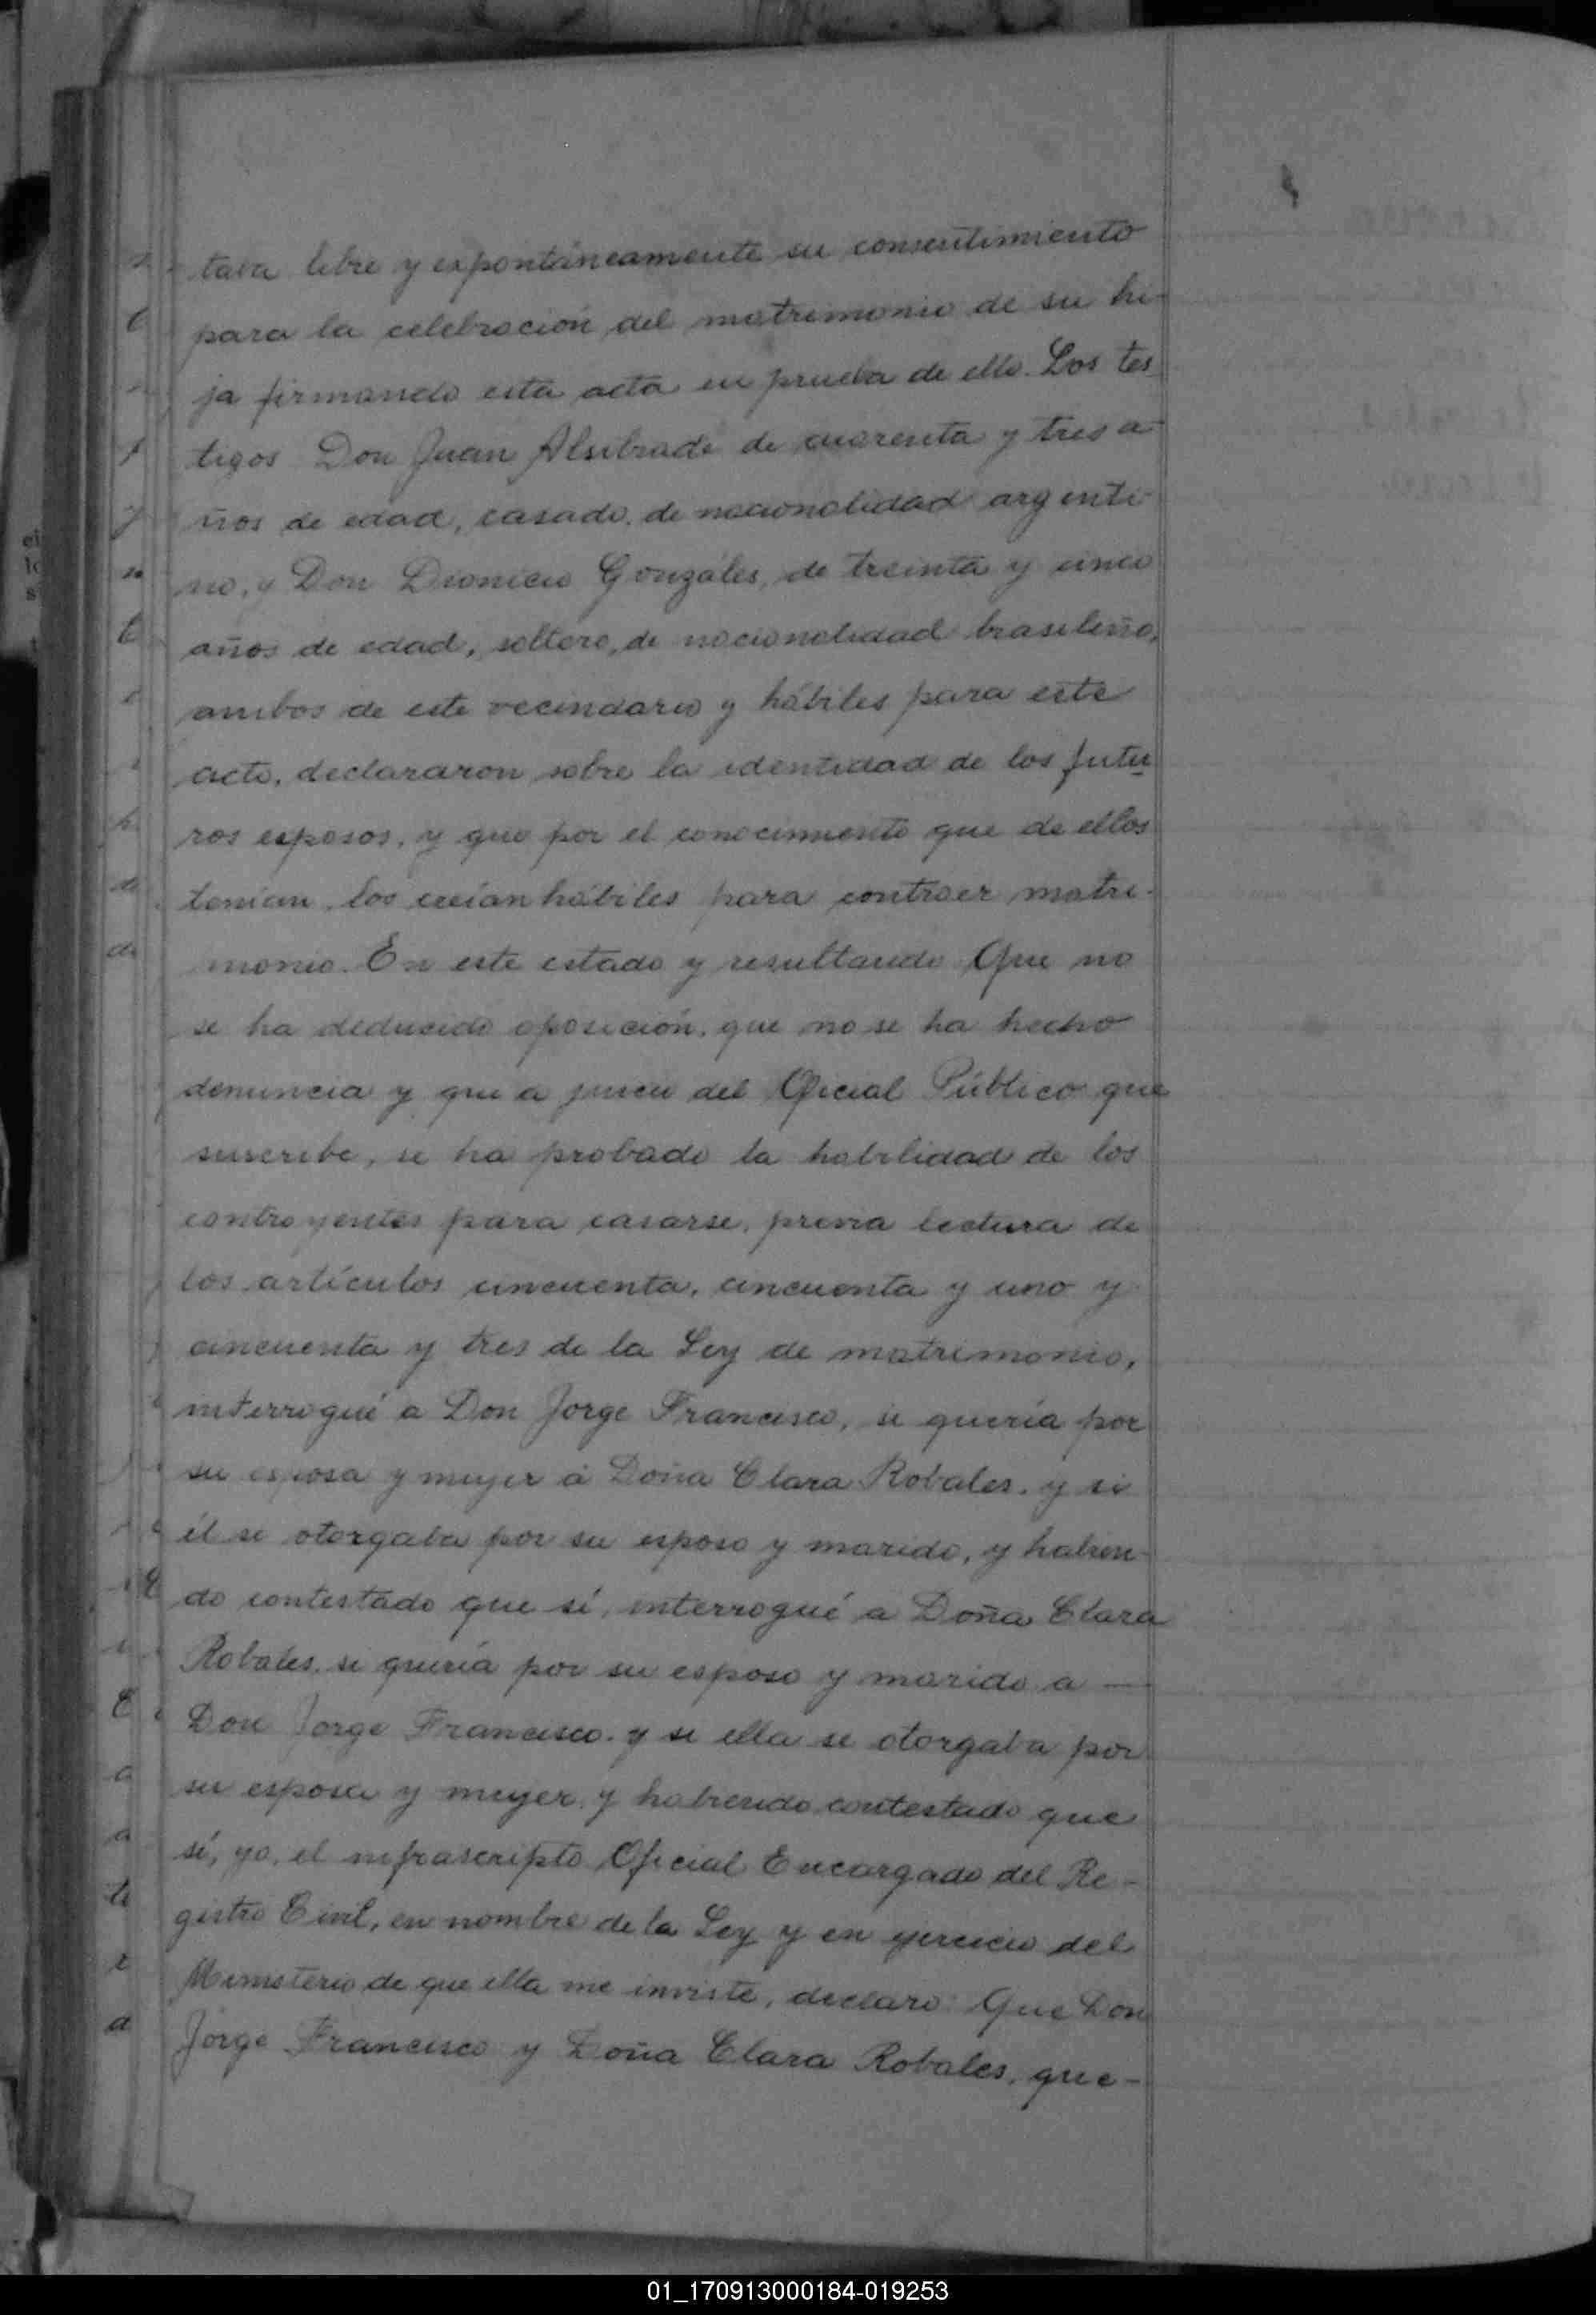 taba libre y expontáneamente su consentimiento
para la celebración del matrimonio de su hi-
ja firmando esta acta en prueba de ello. Los tes
tigos Don Juan de cuarenta y tres a-
ños de edad, casado, de nacionalidad argenti-
no, y Don Dionicio Gonzáles, de treinta y cinco
años de edad, soltero, de nacionalidad brasileño,
ambos de este vecindario y hábiles para este
acto, declararon sobre la identidad de los futu
ros esposos, y que por el conocimiento que de ellos
tenían, los creían hábiles para contraer matri-
monio. En este estado y resultando Que no
se ha deducido oposición, que no se ha hecho
denuncia y que a juicio del Oficial Público que
suscribe, se ha probado la habilidad de los
contrayentes para casarse, previa lectura de
los artículos cincuenta, cincuenta y uno y
cincuenta y tres de la Ley de matrimonio,
interrogué a Don Jorge Francisco, si quería por
su esposa y mujer á Doña Clara Robales, y si
él se otorgaba por su esposo y marido, y habien-
do contestado que sí, interrogué a Doña Clara
Robales, si quería por su esposo y marido a —
Don Jorge Francisco, y si ella se otorgaba por
su esposa y mujer, y habiendo contestado que
sí, yo, el infrascripto Oficial Encargado del Re-
gistro Civil, en nombre de la Ley y en ejercicio del
Ministerio de que ella me inviste, declaro: Que Don
Jorge Francisco y Doña Clara Robales, que-
01_170913000184-019253